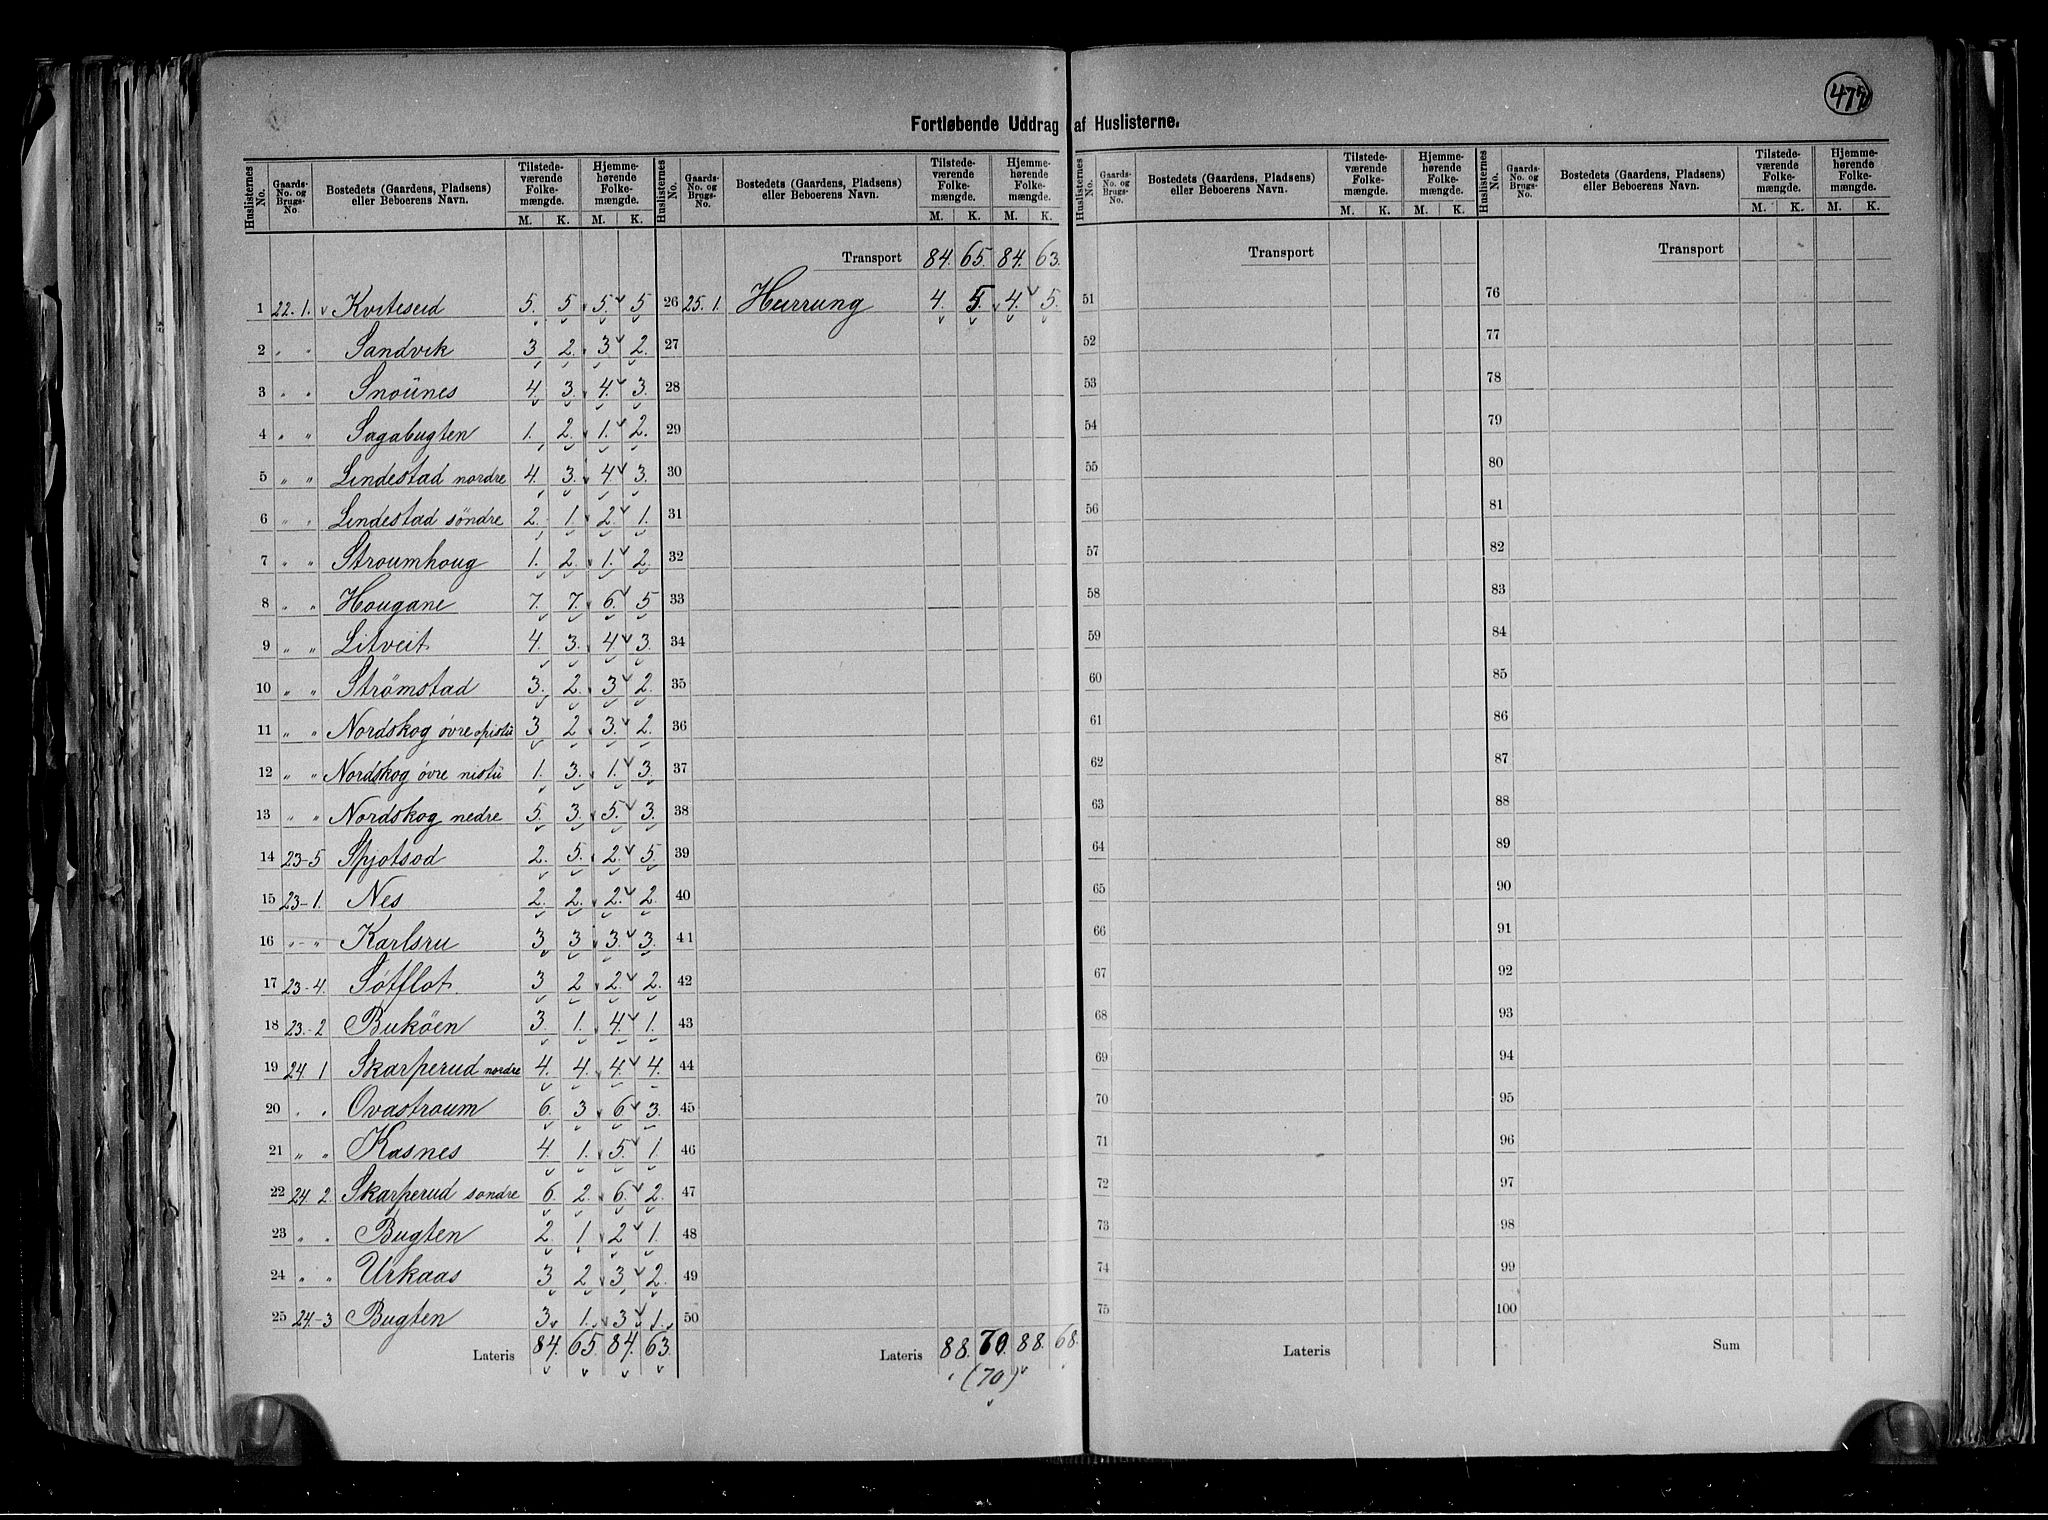 477
Fortløbende Uddrag af Huslisterne.
Huslisternes No. | Gaards-No. og Brugs-No. | Bostedets (Gaardens, Pladsens) eller Beboerens Navn. | Tilstedeværende Folkemængde. M. K. | Hjemmehørende Folkemængde. M. K.
1 22. 1. Kviteseid 5. 5. 5. 5
2 " " Sandvik 3 2. 3 2.
3 " " Snoünes 4 3. 4. 3.
4 " " Sagabugten 1. 2. 1. 2.
5 " " Lindestad nordre 4. 3. 4 3.
6 " " Lindestad söndre 2. 1. 2. 1.
7 " " Stroumhoug 1. 2. 1. 2.
8 " " Hougane 7. 7. 6. 5
9 " " Litveit 4. 3. 4 3.
10 " " Strømstad 3. 2. 3 2.
11 " " Nordskog óvre opistü 3 2 3. 2.
12 " " Nordskog óvre nistü 1. 3. 1. 3.
13 " " Nordskog nedre 5. 3. 5. 3.
14 23-5 Spjotsod 2. 5. 2. 5.
15 23-1. Nes 2. 2. 2. 2.
16 " - " Karlsru 3 3 3. 3.
17 23-4. Søtflot. 3 2 2. 2.
18 23.-2 Buköen 3. 1. 4. 1.
19 24 1 Skarperud nordre 4. 4. 4. 4.
20 " " Ovastroum 6. 3 6 3.
21 " " Kasnes 4. 1. 5. 1.
22 24. 2. Skarperud sondre 6. 2. 6. 2.
23 " " Bugten 2. 1 2 1.
24 " " Urkaas 3 2 3 2.
25 24.-3 Bugten 3. 1. 3 1.
Lateris 84. 65. 84. 63.
Huslisternes No. | Gaards-No. og Brugs-No. | Bostedets (Gaardens, Pladsens) eller Beboerens Navn. | Tilstedeværende Folkemængde. M. K. | Hjemmehørende Folkemængde. M. K.
Transport 84. 65. 84. 63.
26 25. 1. Hurrung 4. 5. 4. 5.
27
28
29
30
31
32
33
34
35
36
37
38
39
40
41
42
43
44
45
46
47
48
49
50
Lateris 88. 70. 88. 68.
(70)
Huslisternes No. | Gaards-No. og Brugs-No. | Bostedets (Gaardens, Pladsens) eller Beboerens Navn. | Tilstedeværende Folkemængde. M. K. | Hjemmehørende Folkemængde. M. K.
Transport
51
52
53
54
55
56
57
58
59
60
61
62
63
64
65
66
67
68
69
70
71
72
73
74
75
Lateris
Huslisternes No. | Gaards-No. og Brugs-No. | Bostedets (Gaardens, Pladsens) eller Beboerens Navn. | Tilstedeværende Folkemængde. M. K. | Hjemmehørende Folkemængde. M. K.
Transport
76
77
78
79
80
81
82
83
84
85
86
87
88
89
90
91
92
93
94
95
96
97
98
99
100
Sum